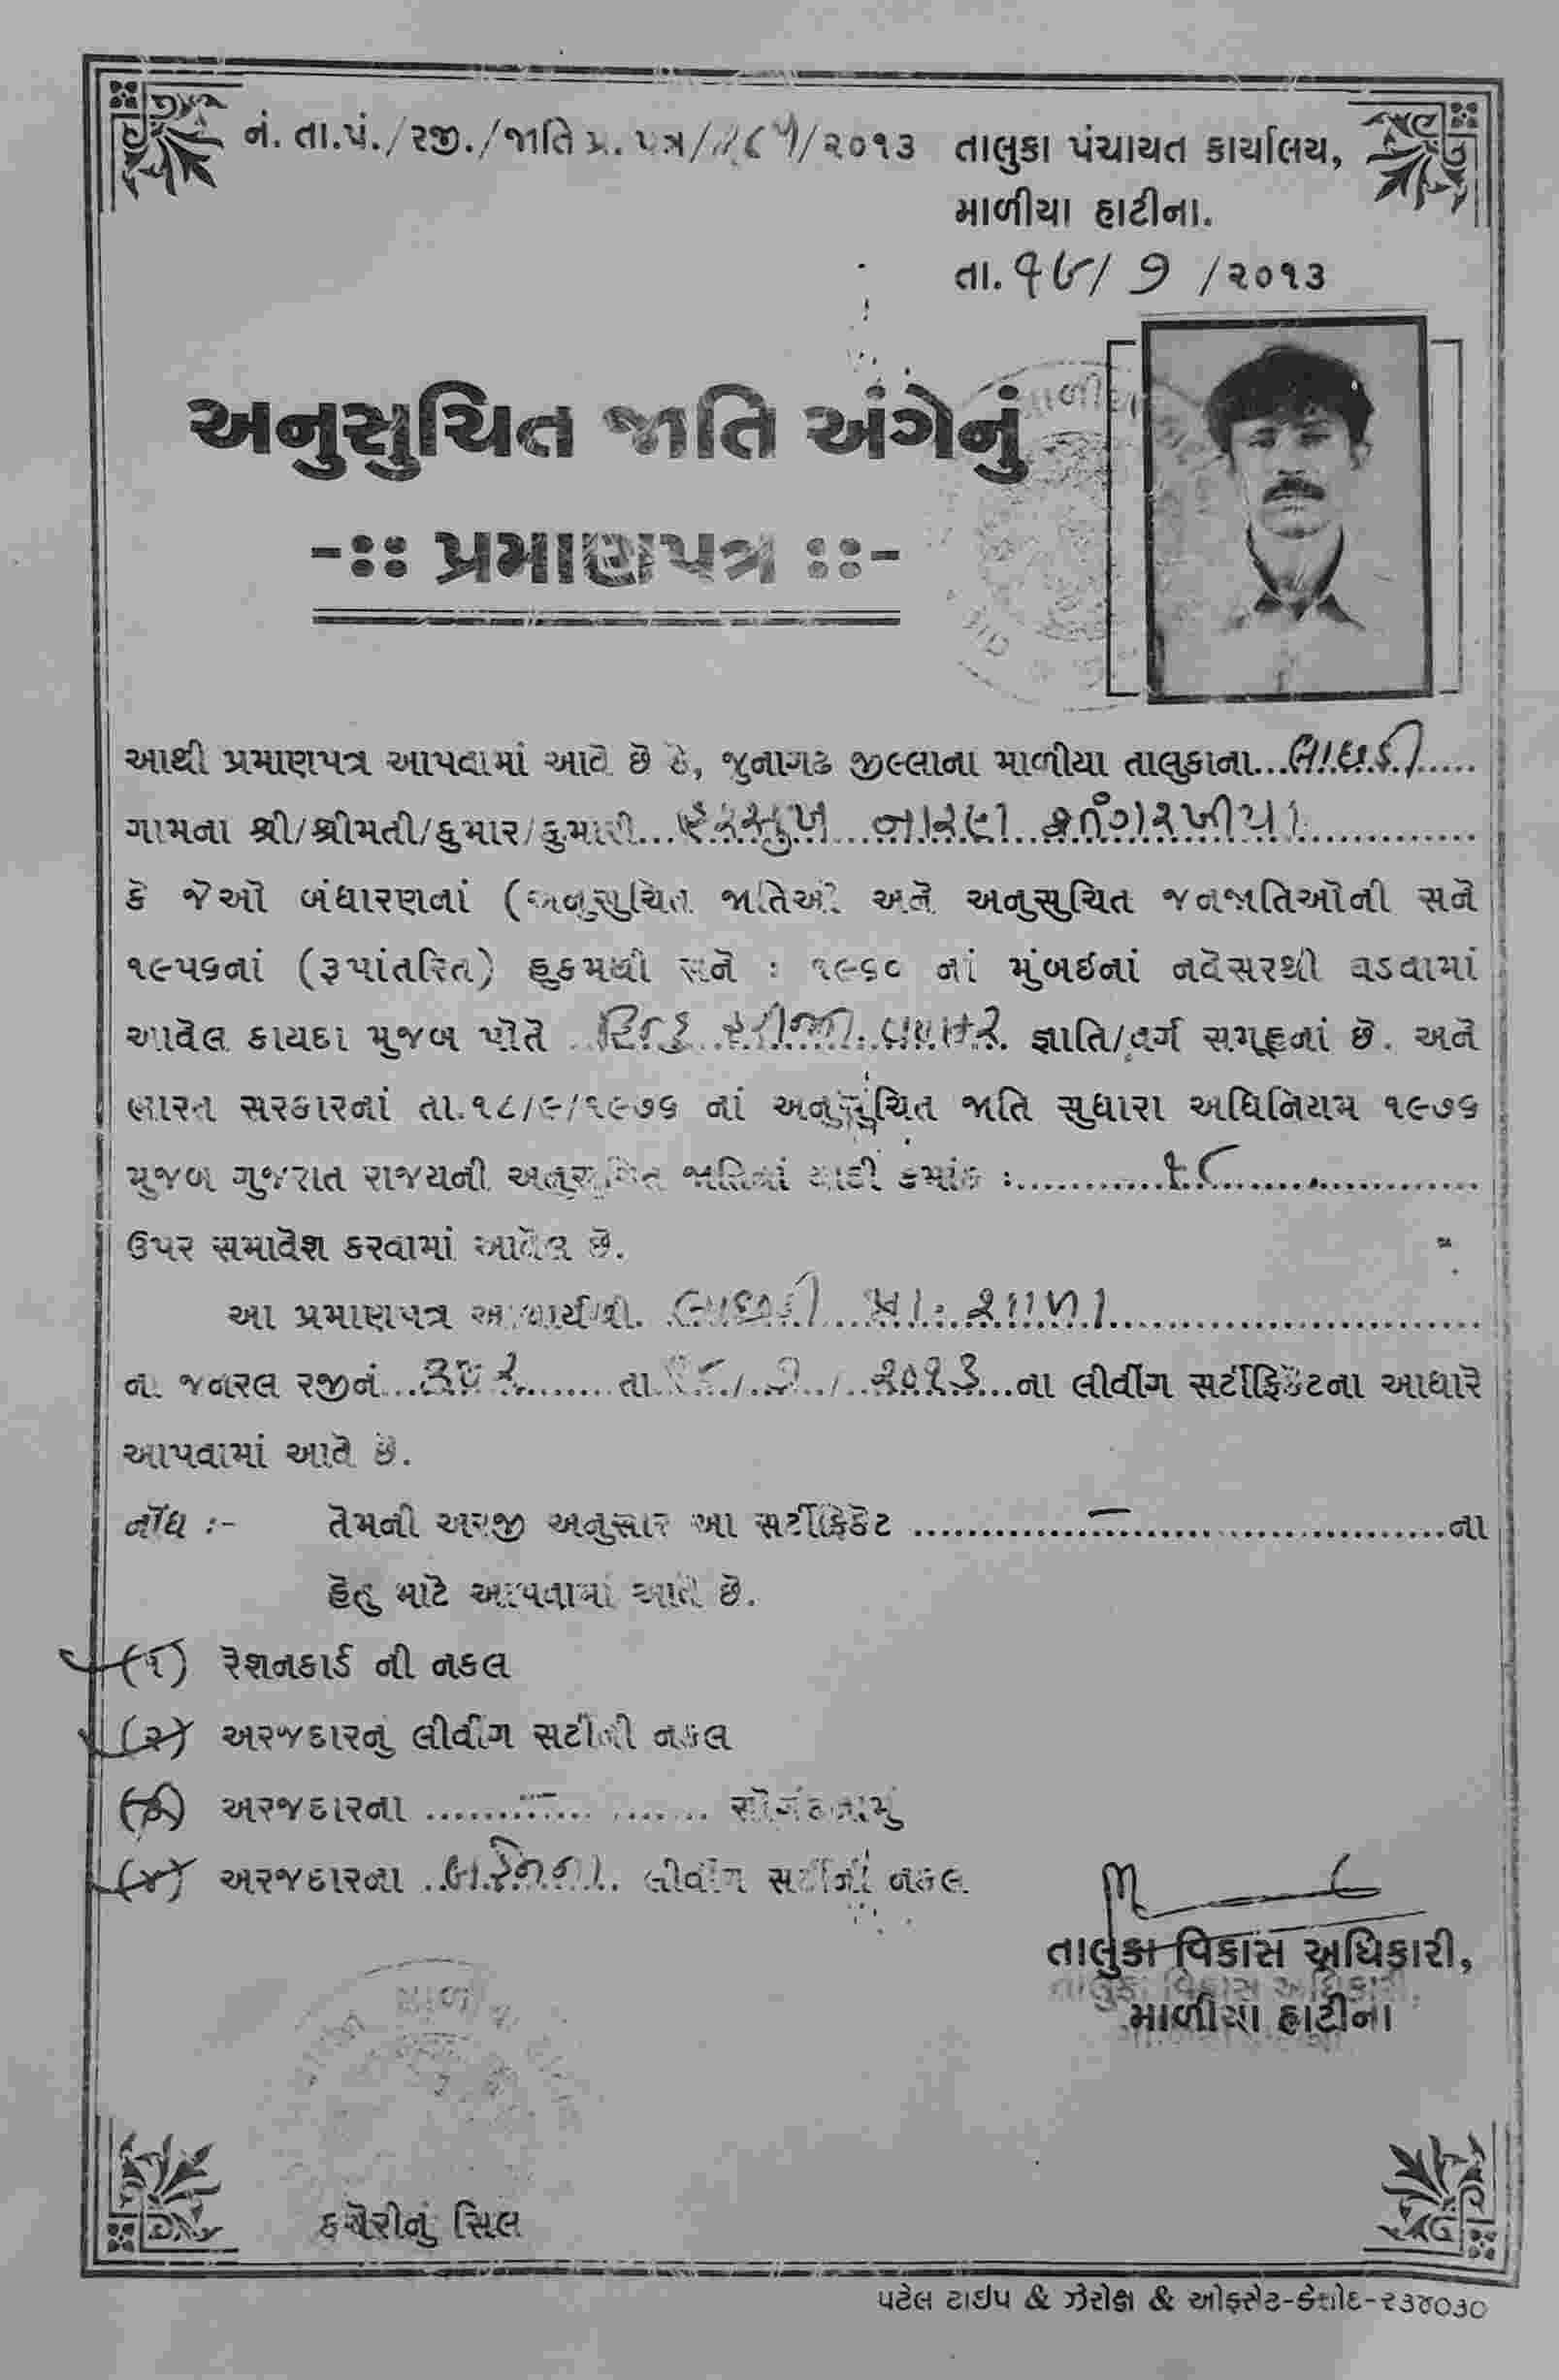 નં. તા.પં./રજી./જાતિ પ્ર. પત્ર/ /૨૦૧૩ તાલુકા પંચાયત કાર્યાલય,
માળીયા હાટીના.
તા. ૧૭/ ૭ /૨૦૧૩
અનુસુચિત જાતિ અંગેનું
-:: પ્રમાણપત્ર ::-
આથી પ્રમાણપત્ર આપવામાં આવે છે કે, જુનાગઢ જીલ્લાના માળીયા તાલુકાના...લાછડી.....
ગામના શ્રી/શ્રીમતી/કુમાર/કુમારી...હરસુખ...નારણ...કાંગરખીયા............
કે જેઓ બંધારણનાં (અનુસુચિત જાતિઓ અને અનુસુચિત જનજાતિઓની સને
૧૯૫૬નાં (રૂપાંતરિત) હુકમથી સને : ૧૯૬૦ નાં મુંબઇનાં નવેસરથી ઘડવામાં
આવેલ કાયદા મુજબ પોતે ..હિન્દુ વણકર જ્ઞાતિ/વર્ગ સમૂહનાં છે. અને
ભારત સરકારનાં તા.૧૮/૯/૧૯૭૬ નાં અનુસુચિત જાતિ સુધારા અધિનિયમ ૧૯૭૬
મુજબ ગુજરાત રાજયની અનુસુચિત જાતિનાં યાદી ક્રમાંક :...........૧૮....................
ઉપર સમાવેશ કરવામાં આવેલ છે.
આ પ્રમાણપત્ર આચાર્યશ્રી. લાછડી...પ્રા. શાળા............................
ના જનરલ રજીનં... તા. ૧૮./..૭../..૨૦૧૩...ના લીવીંગ સર્ટીફિકેટના આધારે
આપવામાં આવે છે.
નોંધ :- તેમની અરજી અનુસાર આ સર્ટીફિકેટ ............–........................ના
હેતુ માટે આપવામાં આવે છે.
(૧) રેશનકાર્ડ ની નકલ
(૨) અરજદારનું લીવીંગ સર્ટીની નકલ
(૩) અરજદારના ....................... સોગંદનામું
(૪) અરજદારના ..બહેનના.. લીવીંગ સર્ટીની નકલ
તાલુકા વિકાસ અધિકારી,
તાલુકા વિકાસ અધિકારી,
માળીયા હાટીના
કચેરીનું સિલ
પટેલ ટાઇપ & ઝેરોક્ષ & ઓફસેટ-કેશોદ-૨૩૪૦૩૦